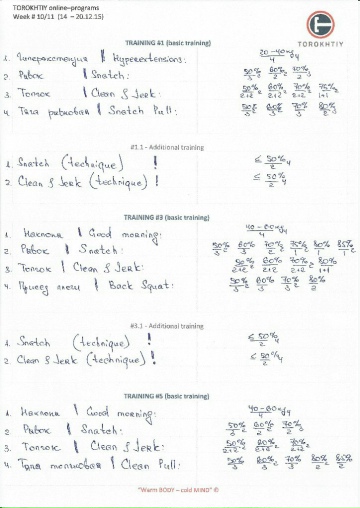 TOROKHTIY online-programs
Week # 10/11 (14 – 20.12.15)
TOROKHTIY
TRAINING #1 (basic training)
1. Гиперэкстензия | Hyperextensions: 20-40кг/4 4
2. Рывок | Snatch: 50%/3 2 60%/2 2 70%/2 3
3. Толчок | Clean & Jerk: 50%/2+2 2 60%/2+2 2 70%/2+2 2 75%/1+1
4. Тяга рывковая | Snatch Pull: 50%/3 60%/3 2 70%/3 80%/2 3
#1.1 - Additional training
1. Snatch (technique) ! ≤ 50%/2 4
2. Clean & Jerk (technique) ! ≤ 50%/2 4
TRAINING #3 (basic training)
1. Наклоны | Good morning: 40-60кг/4 4
2. Рывок | Snatch: 50%/3 60%/3 70%/2 75%/1 80%/1 85%/1
3. Толчок | Clean & Jerk: 50%/2+2 60%/2+2 70%/2+2 80%/1+1
4. Присед плечи | Back Squat: 50%/3 60%/3 70%/3 80%/2
#3.1 - Additional training
1. Snatch (technique) ! ≤ 50%/2 4
2. Clean & Jerk (technique) ! ≤ 50%/2 4
TRAINING #5 (basic training)
1. Наклоны | Good morning: 40-60кг/4 4
2. Рывок | Snatch: 50%/3 60%/2 70%/2
3. Толчок | Clean & Jerk: 50%/2+2 60%/2+2 70%/2+2
4. Тяга толчковая | Clean Pull: 50%/3 60%/3 70%/3 80%/2 80%/2
"Warm BODY – cold MIND" ©